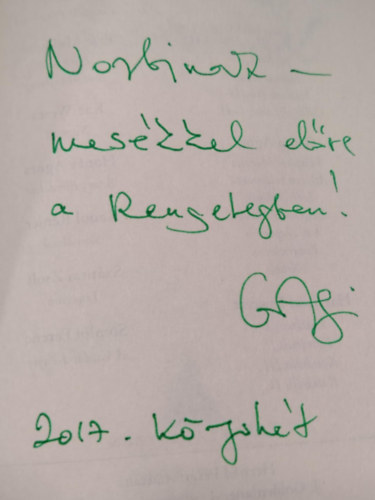 Norbinak –
mesékkel előre
a Rengetegben!
GAgi
2017. Könyvhét